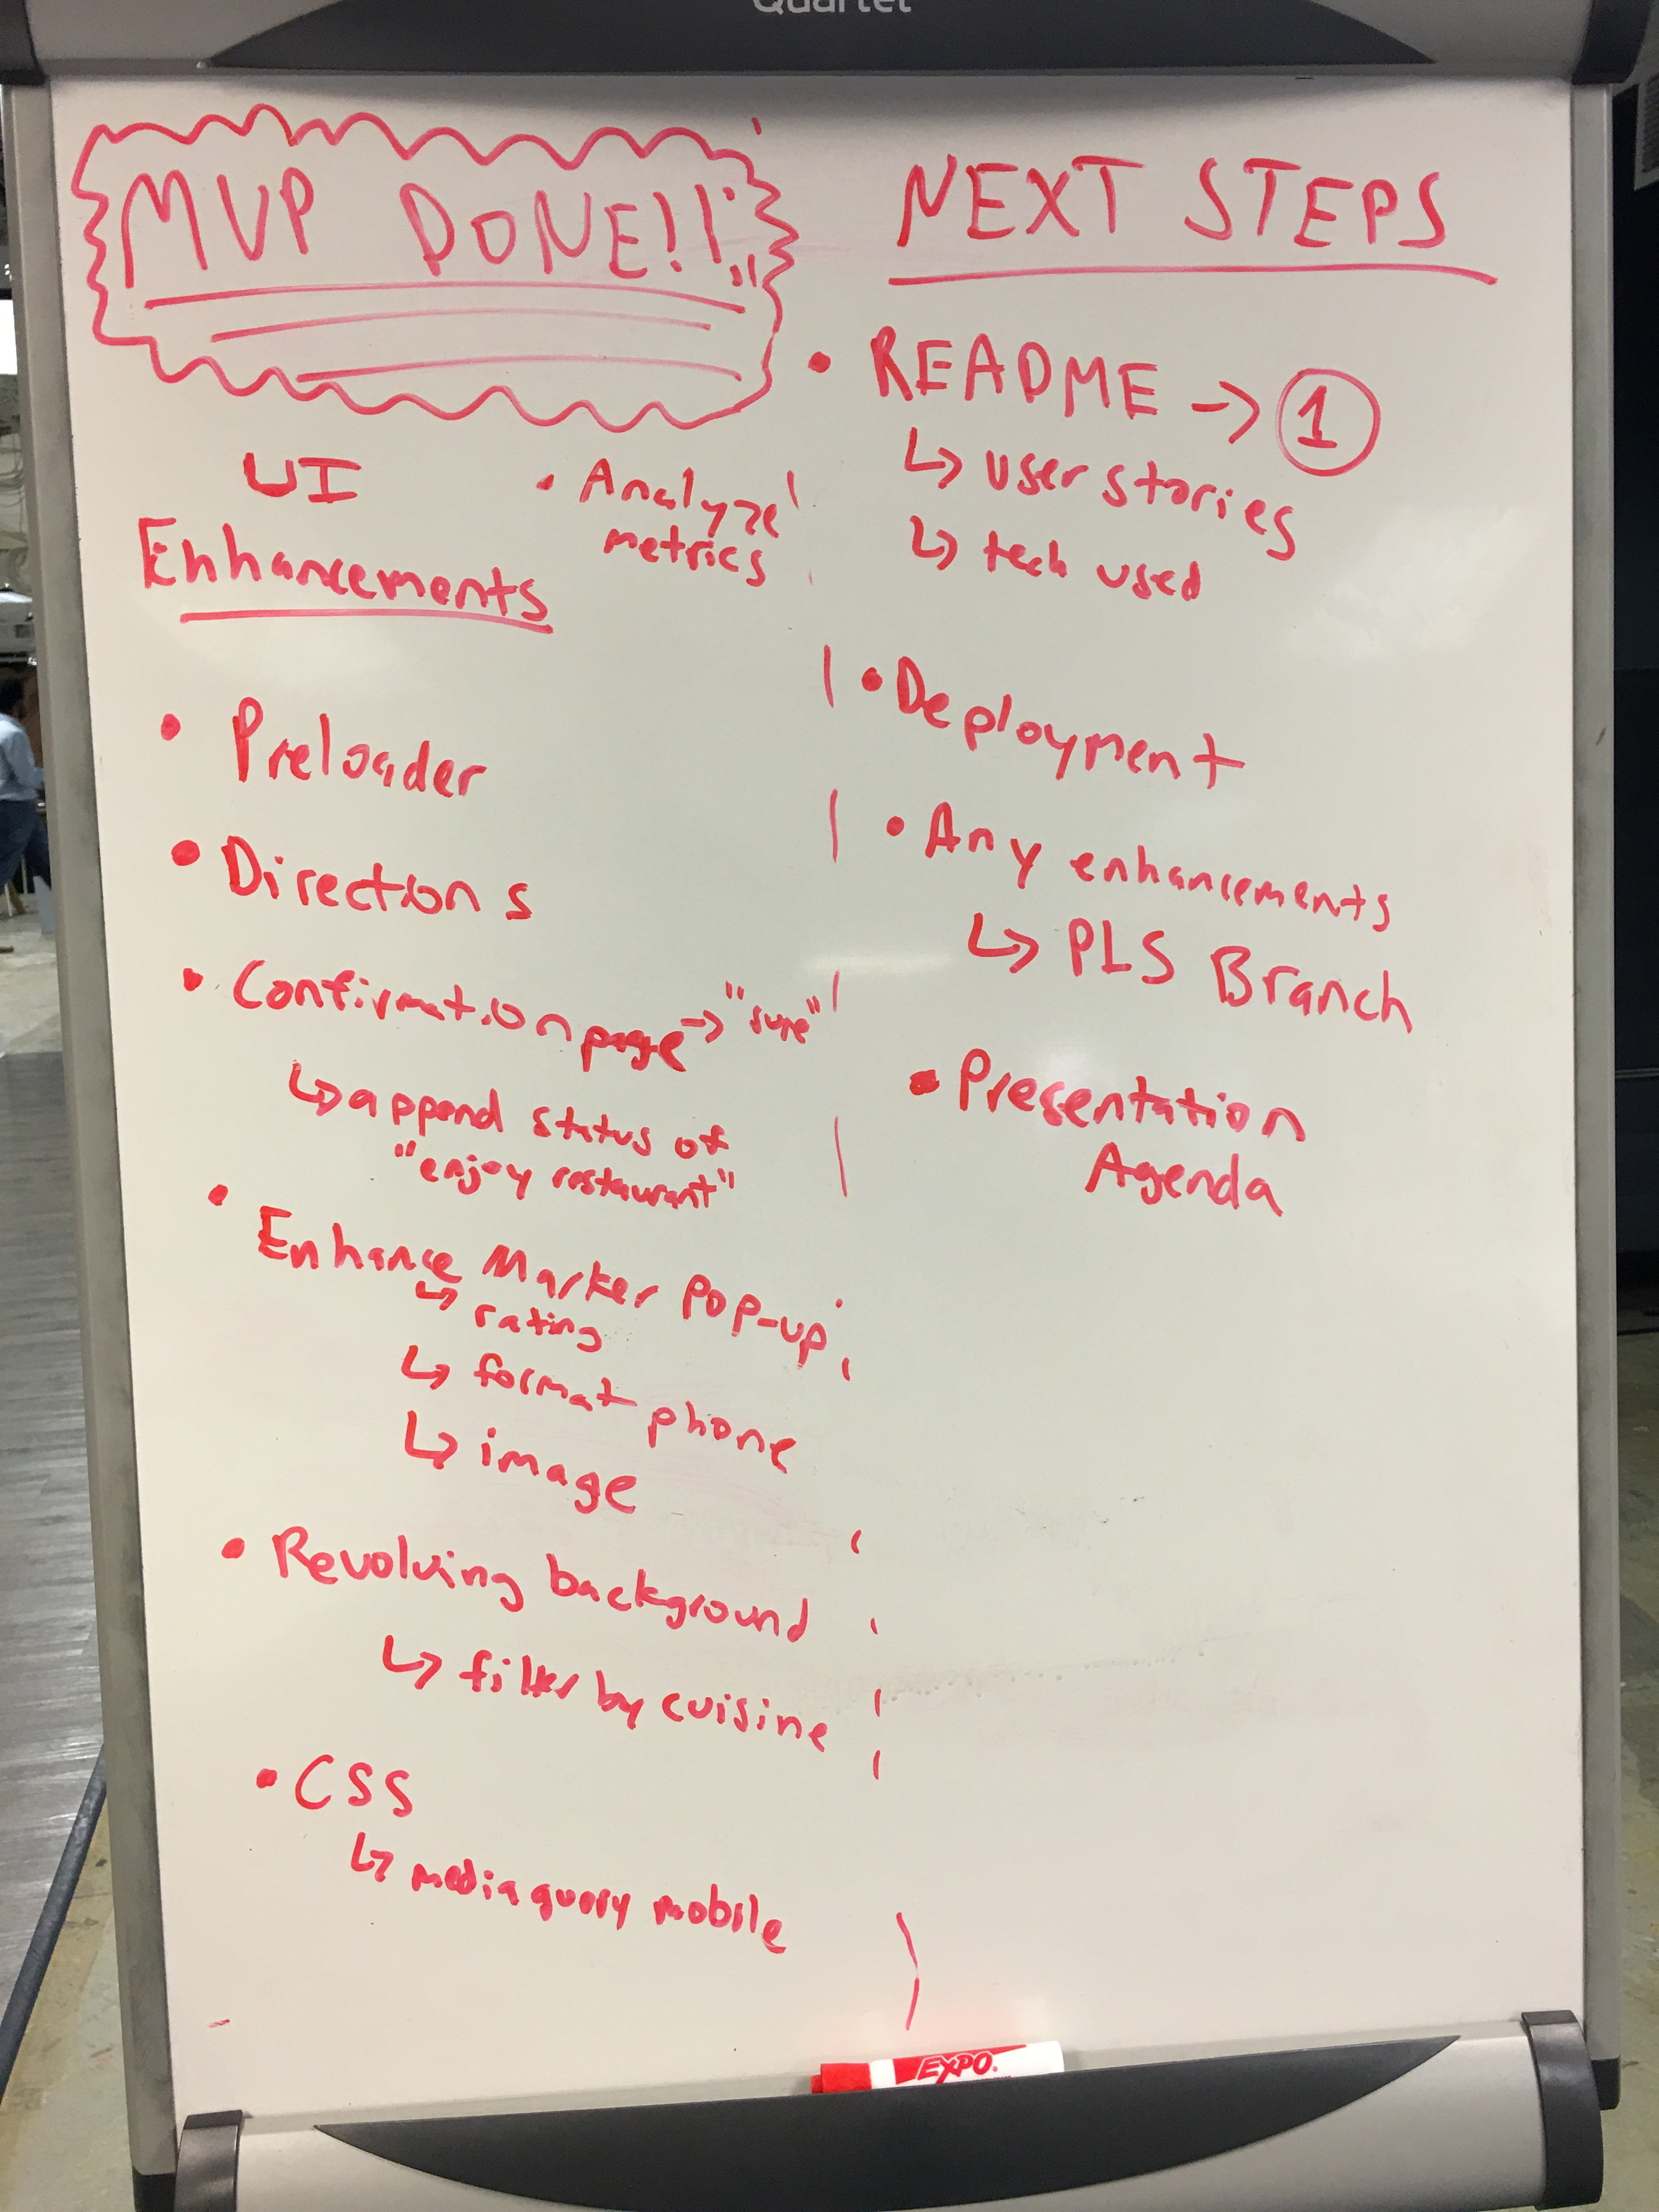 Quartet
MVP DONE!!
UI
Enhancements
• Analyze
metrics
• Preloader
• Directions
• Confirmation page -> "sure"
↳ append status of
"enjoy restaurant"
• Enhance Marker Pop-up
↳ rating
↳ format phone
↳ image
• Revolving background
↳ filter by cuisine
• CSS
↳ media query mobile
NEXT STEPS
• README -> 1
↳ user stories
↳ tech used
• Deployment
• Any enhancements
↳ PLS Branch
• Presentation
Agenda
EXPO